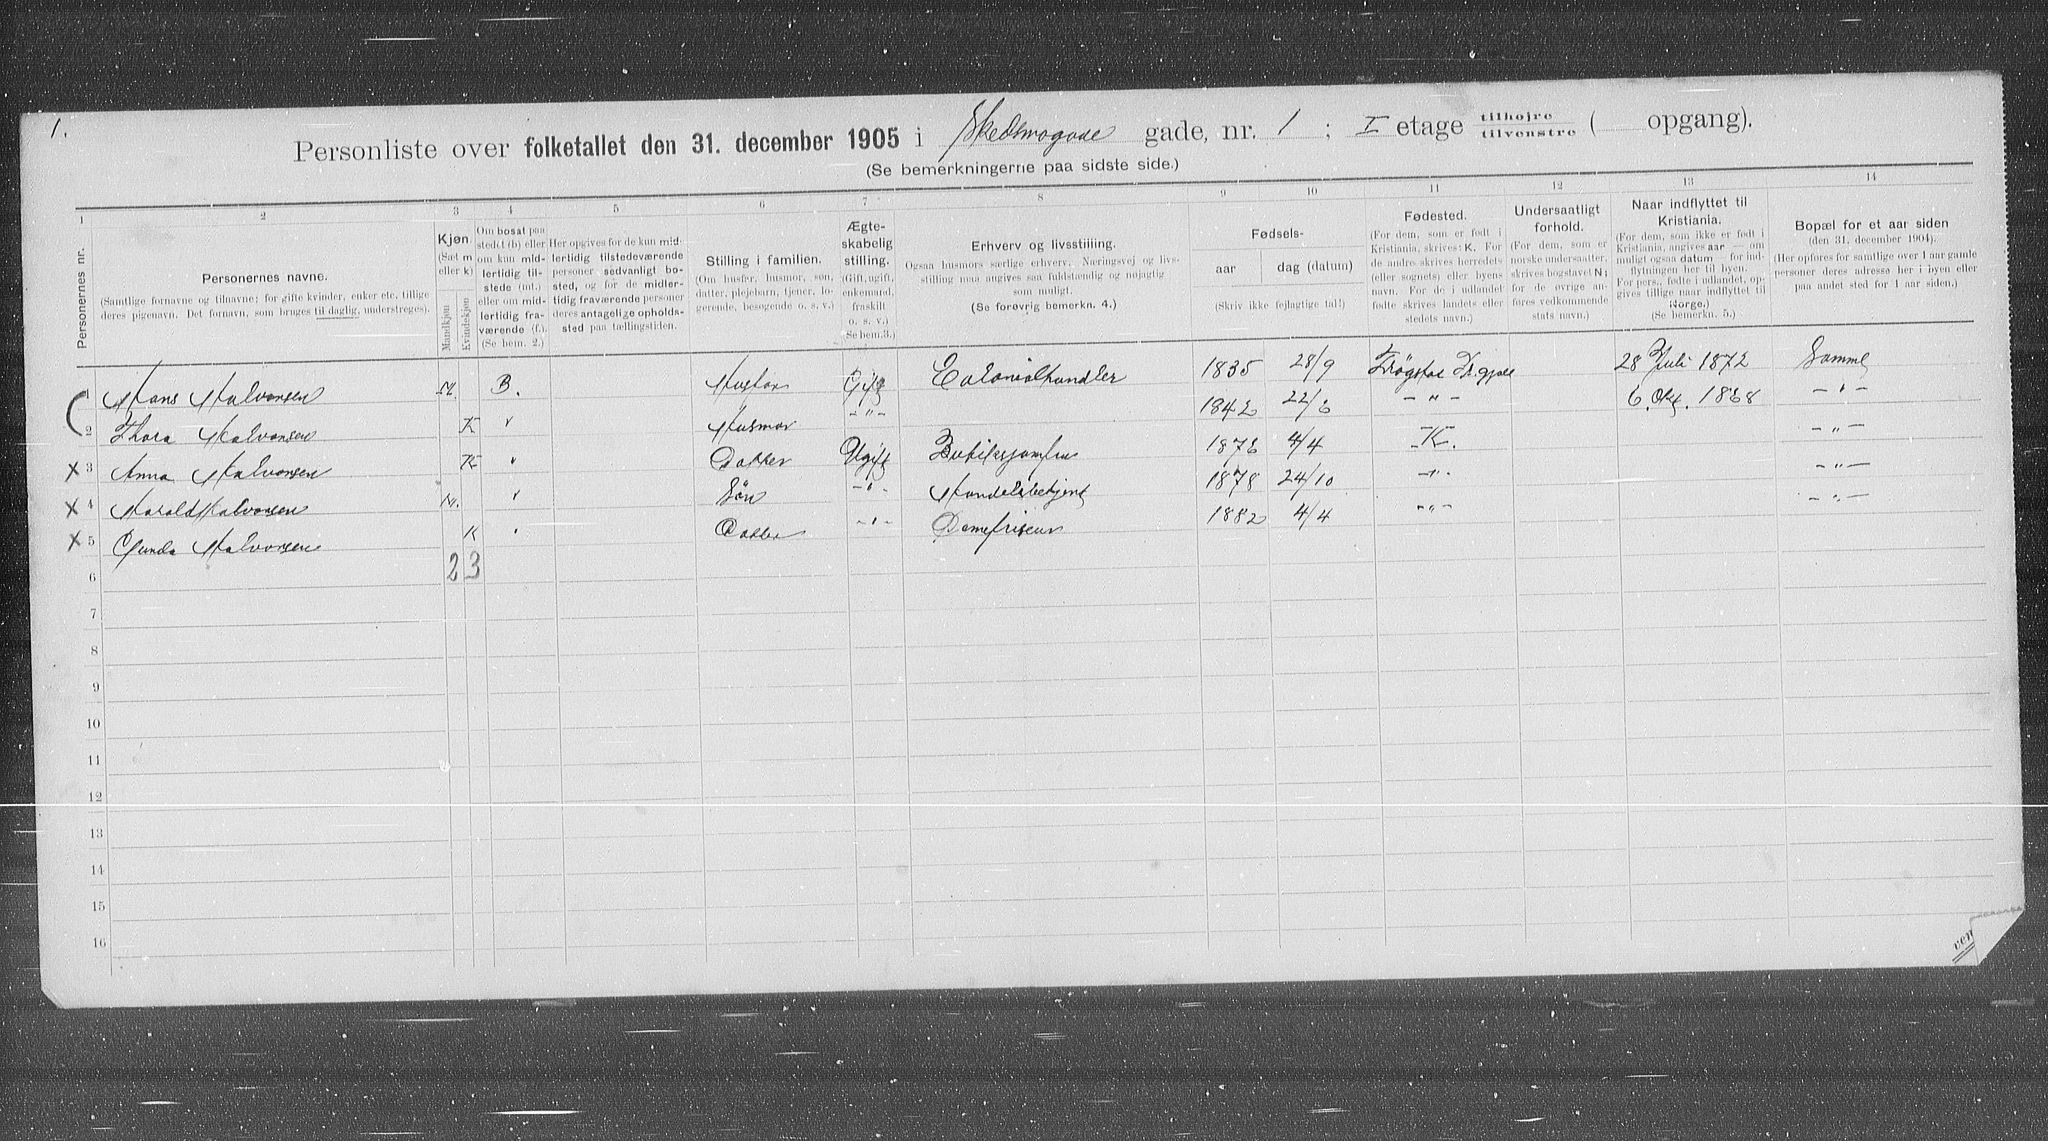 1.
Personliste over folketallet den 31. december 1905 i Skedsmogade gade, nr. 1 ; I etage tilhøjre tilvenstre ( opgang).
(Se bemerkningerne paa sidste side.)
1 2 3 4 5 6 7 8 9 10 11 12 13 14
Personernes nr.
Personernes navne.
(Samtlige fornavne og tilnavne; for gifte kvinder, enker etc. tillige
deres pigenavn. Det fornavn, som bruges til daglig, understreges).
Kjøn
(Sæt m
eller k)
Mandkjøn
Kvindekjøn
Om bosat paa
stedet (b) eller
om kun mid-
lertidig til-
stede (mt.)
eller om mid-
lertidig fra-
værende (f.)
(Se bem. 2.)
Her opgives for de kun mid-
lertidig tilstedeværende
personer sedvanligt bo-
sted, og for de midler-
tidig fraværende personer
deres antagelige opholds-
sted paa tællingstiden.
Stilling i familien.
(Om husfer, husmor, søn,
datter, plejebarn, tjener, lo-
gerende, besøgende o. s. v.)
Ægte-
skabelig
stilling.
(Gift, ugift,
enkemand,
fraskilt
o. s. v.)
(Se bem. 3.)
Erhverv og livsstilling.
Ogsaa husmors særlige erhverv. Næringsvej og livs-
stilling maa angives saa fuldstændig og nøjagtig
som muligt.
(Se forøvrig bemerkn. 4.)
Fødsels-
aar
dag (datum)
(Skriv ikke fejlagtige tal!)
Fødested.
(For dem, som er født i
Kristiania, skrives: K. For
de andre skrives herredets
(eller sognets) eller byens
navn. For de i udlandet
fødte skrives landets eller
stedets navn.)
Undersaatligt
forhold.
(For dem, som er
norske undersaatter,
skrives bogstavet N;
for de øvrige an-
føres vedkommende
stats navn.)
Naar indflyttet til
Kristiania.
(For dem, som ikke er født i
Kristiania, angives aar — om
muligt ogsaa datum — for ind-
flytningen her til byen.
For pers., fødte i udlandet, op-
gives tillige naar indflyttet til
Norge.)
(Se bemerkn. 5.)
Bopæl for et aar siden
(den 31. december 1904).
(Her opføres for samtlige over 1 aar gamle
personer deres adresse her i byen eller
paa andet sted for 1 aar siden.)
1 Hans Halvorsen M. B. Husfar Gift Colonialhandler 1835 28/9 Trøgstad 28 Juli 1872 Samme
2 Thora Halvorsen K " Husmor -"- 1842 22/6 -"- 6. Okt. 1868 -"-
x 3 Anna Halvorsen K " Datter Ugift Butiksjomfru 1876 4/4 K. -"-
x 4 Harald Halvorsen M. " Søn -"- Handelsbetjent 1878 24/10 -"- -"-
x 5 Gunda Halvorsen K " Datter -"- Damefriseur 1882 4/4 -"- -"-
6 2 3
7
8
9
10
11
12
13
14
15
16
ven